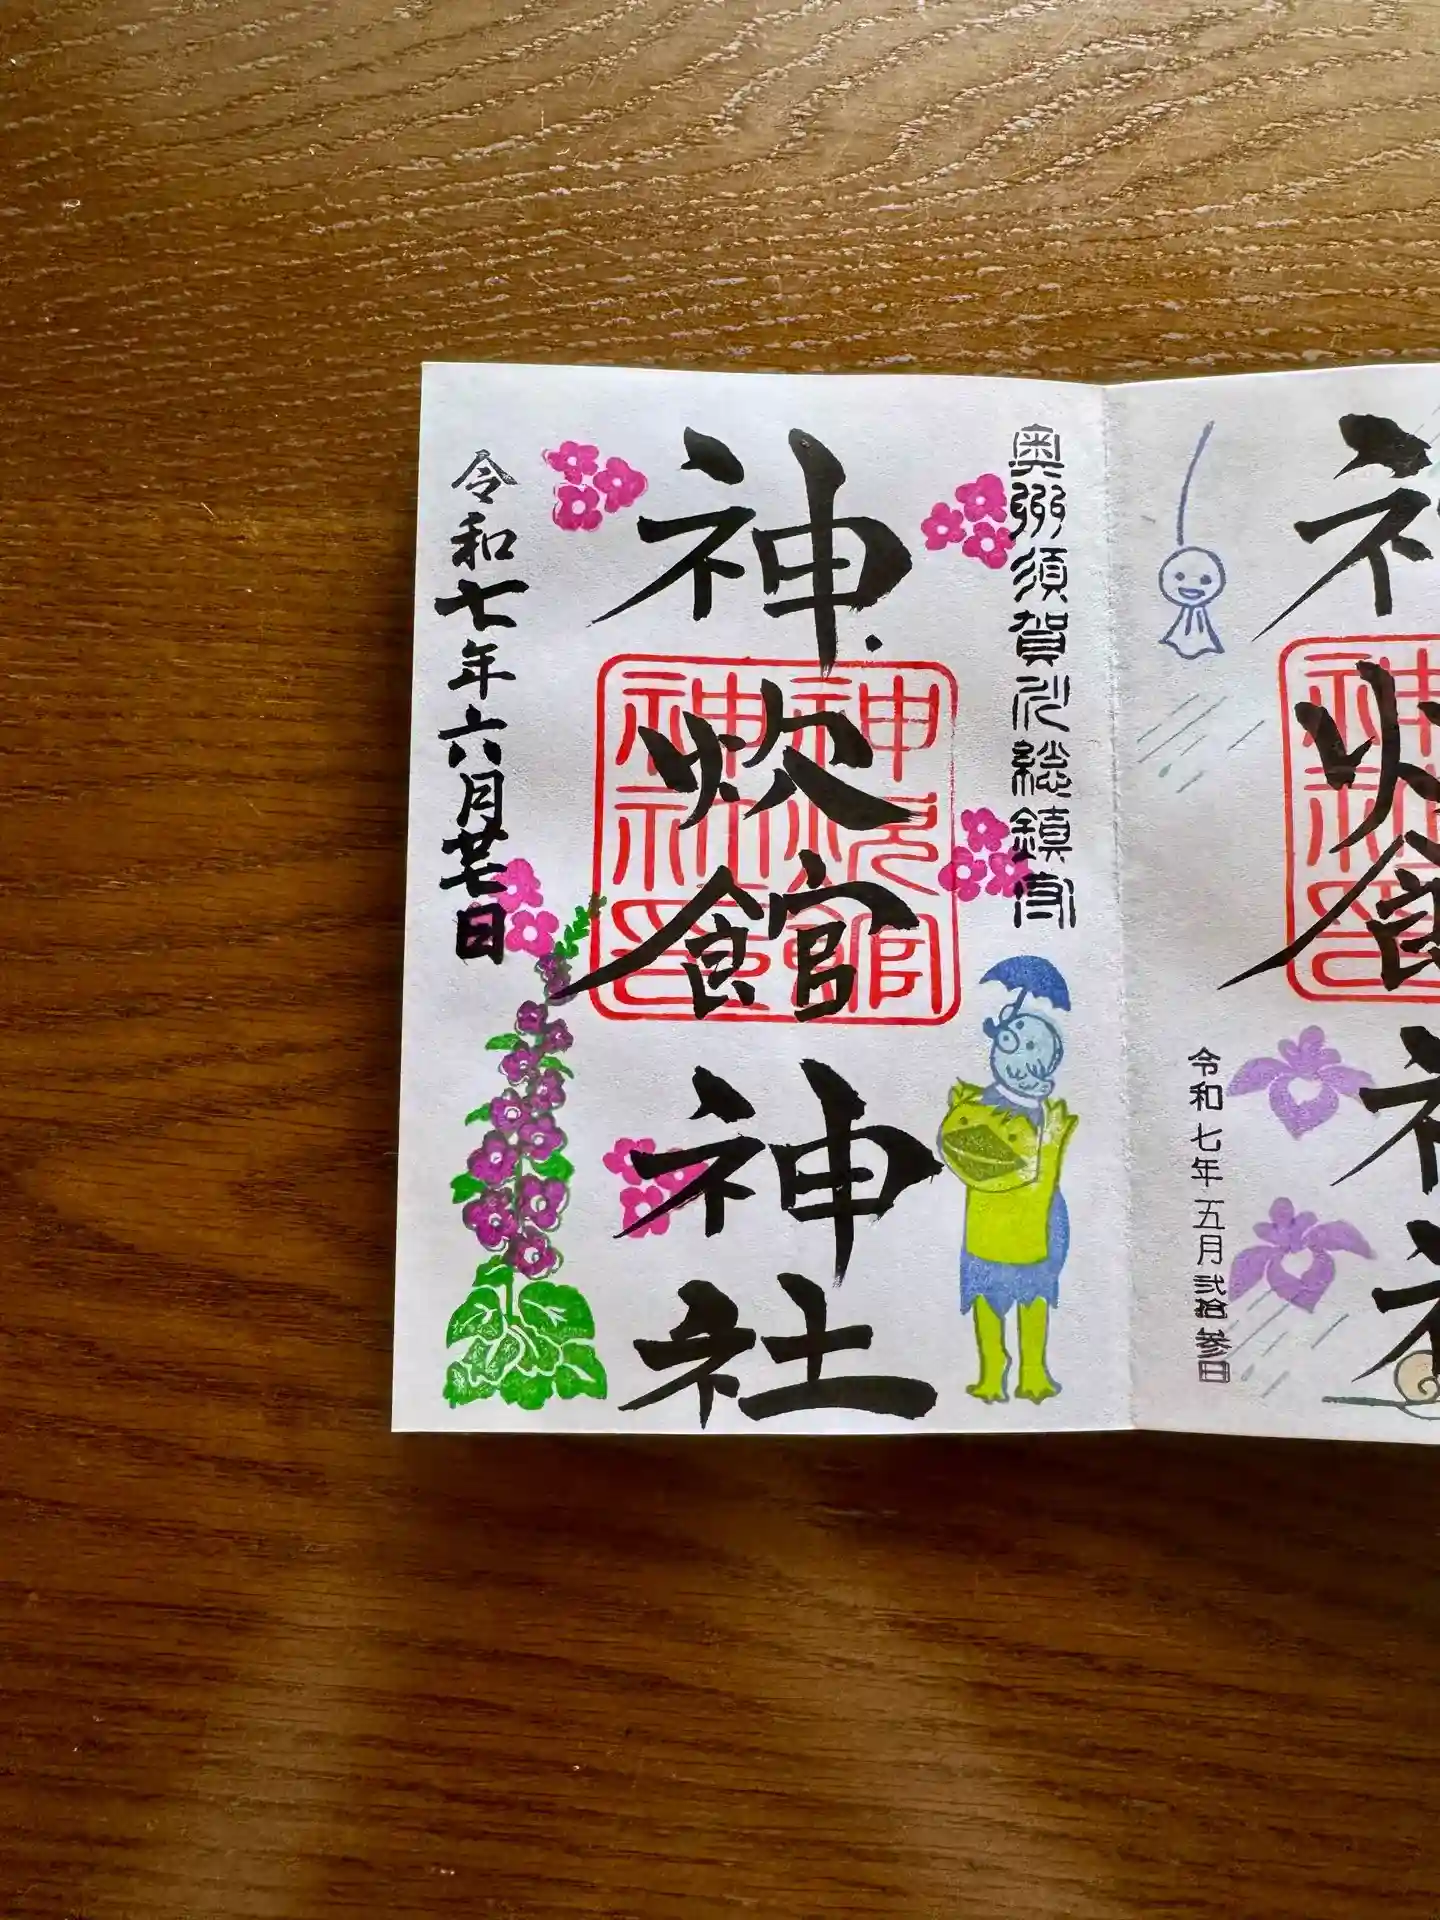 令和七年五月弐拾参日
奥州須賀川総鎮守
神炊館神社
神炊館
神社印
令和七年六月廿七日